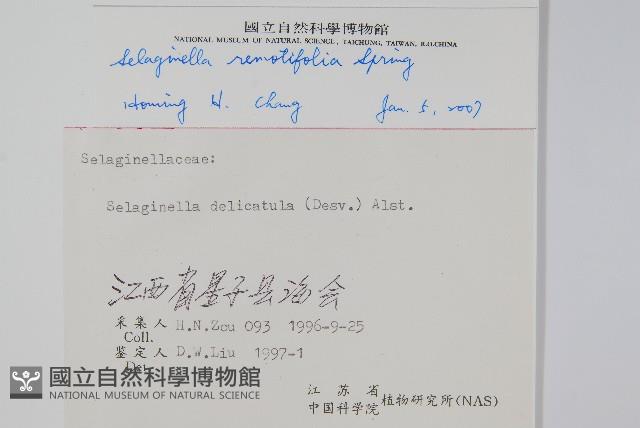 國立自然科學博物館
NATIONAL MUSEUM OF NATURAL SCIENCE, TAICHUNG, TAIWAN, R.O.CHINA
Selaginella remotifolia Spring
Homing H. Chang Jan. 5, 2007
Selaginellaceae:
Selaginella delicatula (Desv.) Alst.
江西省星子县海会
采集人 H.N.Zou 093 1996-9-25
Coll.
鉴定人 D.W.Liu 1997-1
Det.
國立自然科學博物館
NATIONAL MUSEUM OF NATURAL SCIENCE
江苏省
中国科学院 植物研究所(NAS)